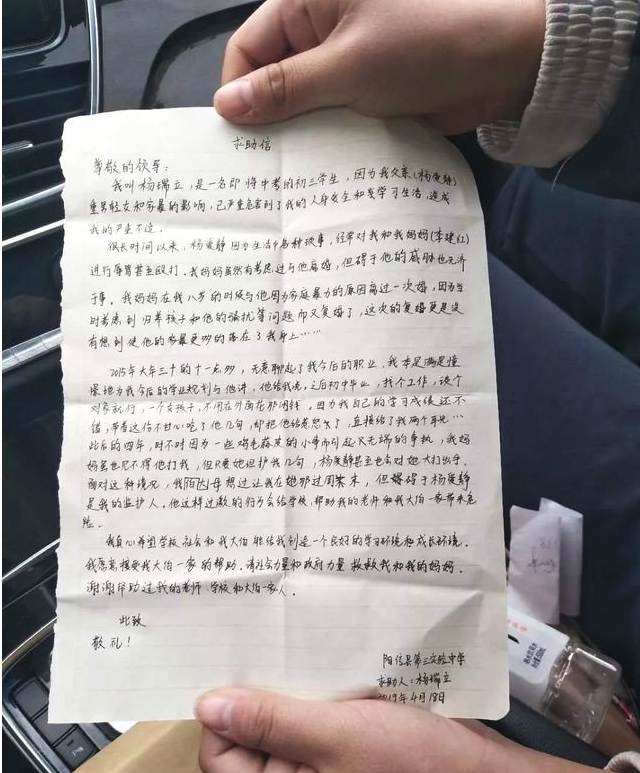 求助信
尊敬的领导：
我叫杨瑞立，是一名即将中考的初三学生，因为我父亲(杨爱静)
重男轻女和家暴的影响，已严重危害到了我的人身安全和学习生活，造成
我的严重不适。
很长时间以来，杨爱静因为生活中各种琐事，经常对我和我妈妈(李建红)
进行辱骂甚至殴打。我妈妈虽然有考虑过与他离婚，但碍于他的威胁也无济
于事。我妈妈在我八岁的时候与他因为家庭暴力的原因离过一次婚，因为当
时考虑到归养孩子和他的骚扰等问题而又复婚了，这次的复婚更是没
有想到使他的家暴更多的落在了我身上……
2015年大年三十的十一点多，无意聊起了我今后的职业，我本是满是憧
憬地为我今后的学业规划与他讲，他给我说，之后初中毕业，找个工作，谈个
对象就行，一个女孩子，不用在外面花那闲钱。因为我自己的学习成绩还不
错，带着这份不甘心吃了他几句，却把他给惹怒了，直接给了我两个耳光…
此后的四年，时不时因为一些鸡毛蒜皮的小事而引起火无端的争执，我妈
妈虽也见不得他打我，但只要她袒护我几句，杨爱静甚至也会对她大打出手。
面对这种情况，我大伯母想过让我在她那过周末，但碍于杨爱静
是我的监护人。他这样过激的行为会给学校，帮助我的老师和我大伯一家带来危
险。
我真心希望学校，社会和我大伯能给我创造一个良好的学习环境和成长环境。
我愿意接受我大伯一家的帮助。请社会力量和政府力量 救救我和我的妈妈。
谢谢帮助过我的老师、学校和大伯一家人。
此致
敬礼！
阳信县第三实验中学
求助人：杨瑞立
2019年4月18日